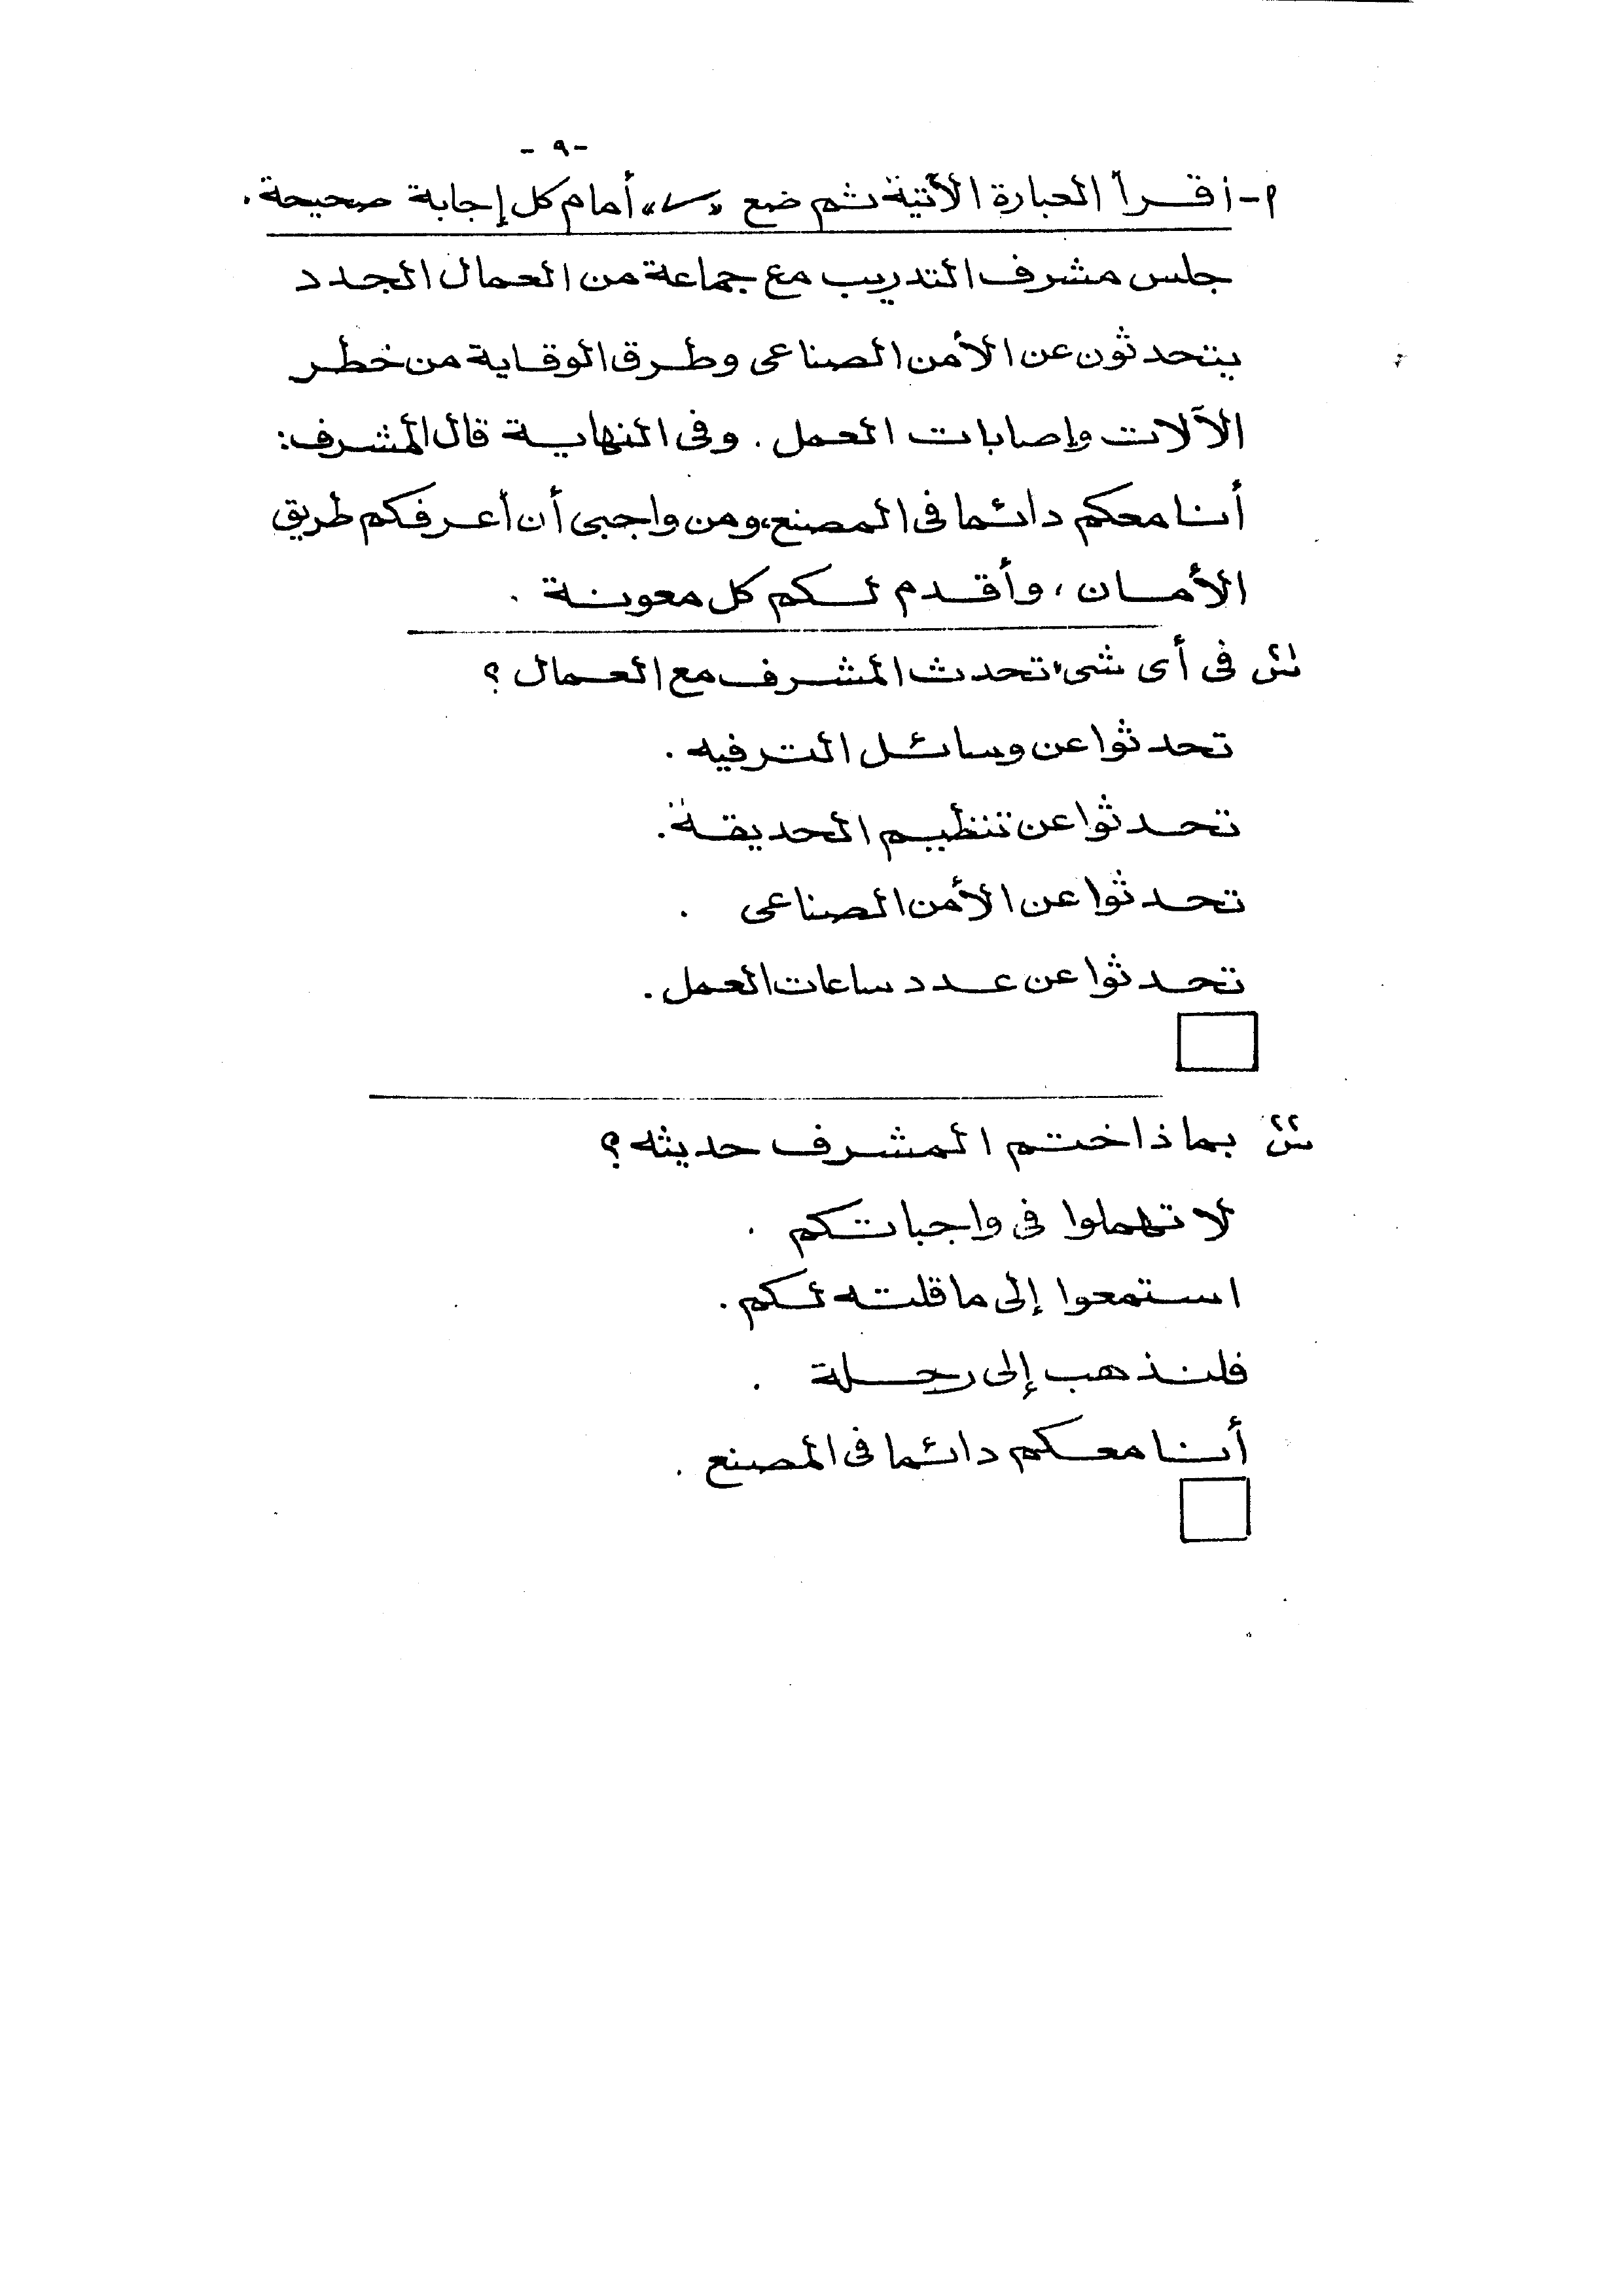 - ٩ -
٢- اقرأ العبارة الآتية ثم ضع «✓» أمام كل إجابة صحيحة .
جلس مشرف التدريب مع جماعة من العمال الجدد
يتحدثون عن الأمن الصناعى وطرق الوقاية من خطر
الآلات وإصابات العمل . وفى النهاية قال المشرف :
أنا معكم دائما فى المصنع ، ومن واجبى أن أعرفكم طريق
الأمان ، وأقدم لكم كل معونة .
س١ فى أى شىء تحدث المشرف مع العمال ؟
تحدثوا عن وسائل الترفيه .
تحدثوا عن تنظيم الحديقة .
تحدثوا عن الأمن الصناعى .
تحدثوا عن عدد ساعات العمل .
س٢ بماذا ختم المشرف حديثه ؟
لا تهملوا فى واجباتكم .
استمعوا إلى ما قلته لكم .
فلنذهب إلى رحلة .
أنا معكم دائما فى المصنع .